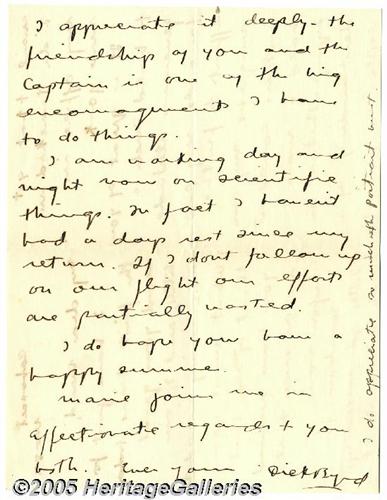 I appreciate it deeply - the
friendship of you and the
Captain is one of the big
encouragements I have
to do things.
I am working day and
night now on scientific
things. In fact I havent
had a days rest since my
return. If I dont follow up
on our flight our efforts
are partially wasted.
I do hope you have a
happy summer.
Marie joins me in
affectionate regards to you
both. Ever yours Dick Byrd
I do appreciate so much the portrait
©2005 HeritageGalleries